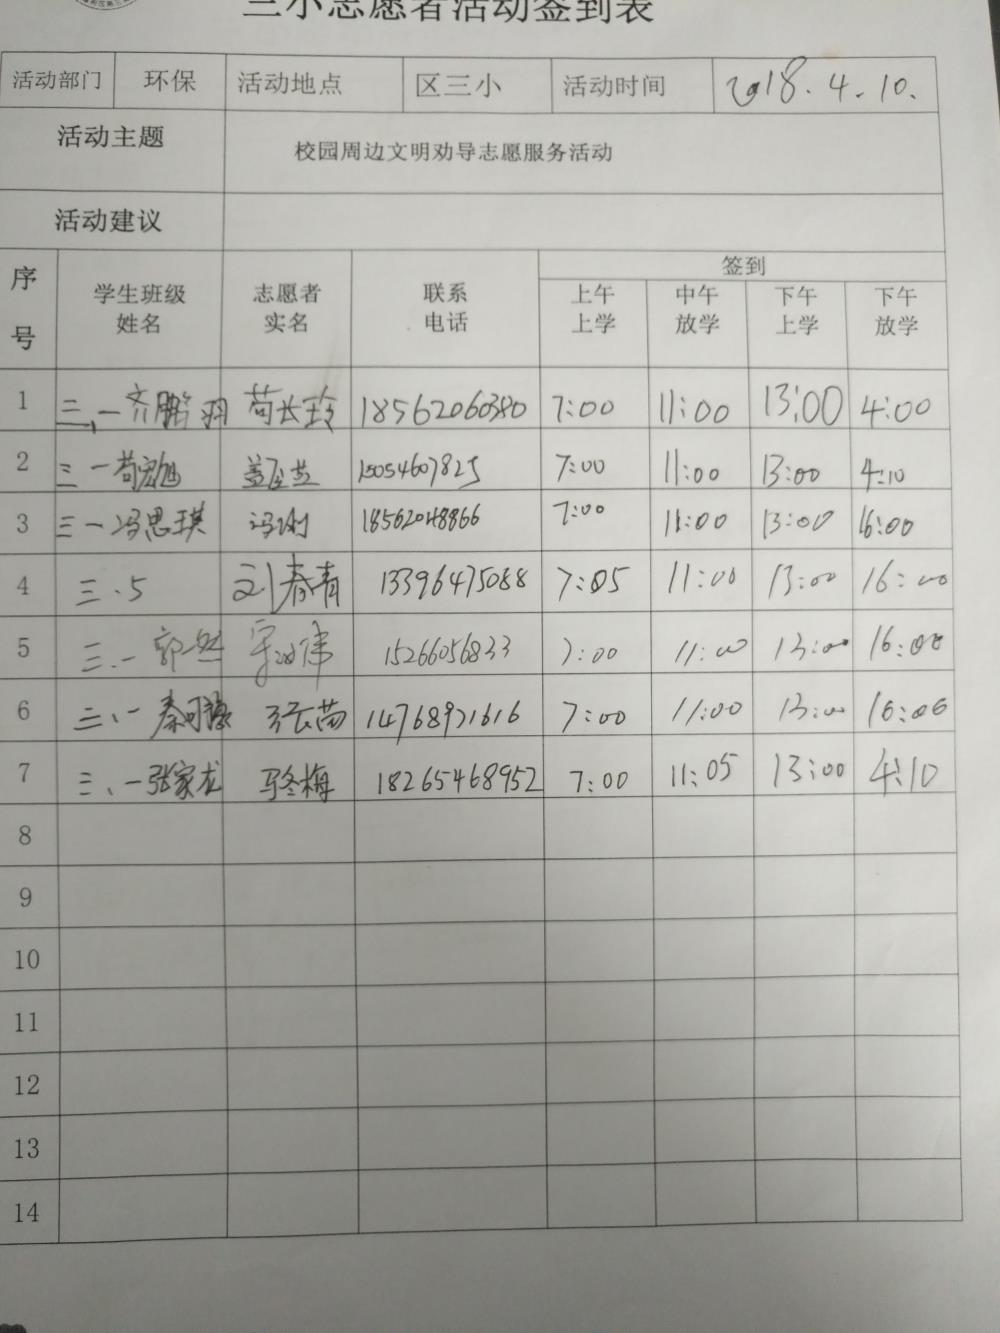 三小志愿者活动签到表
活动部门 环保 活动地点 区三小 活动时间 2018.4.10.
活动主题 校园周边文明劝导志愿服务活动
活动建议
序号 学生班级姓名 志愿者实名 联系电话 签到
上午上学 中午放学 下午上学 下午放学
1 三、一 齐鹏羽 苟长玲 18562060380 7:00 11:00 13:00 4:00
2 三一苟宏旭 15054607825 7:00 11:00 13:00 4:10
3 三一冯思琪 冯刚 18562048866 7:00 11:00 13:00 16:00
4 三.5 刘春青 13396475088 7:05 11:00 13:00 16:00
5 三.一郭然 15266056833 7:00 11:00 13:00 16:00
6 三、一秦可 张苗 14768921616 7:00 11:00 13:00 16:00
7 三、一张家龙 马冬梅 18265468952 7:00 11:05 13:00 4:10
8
9
10
11
12
13
14